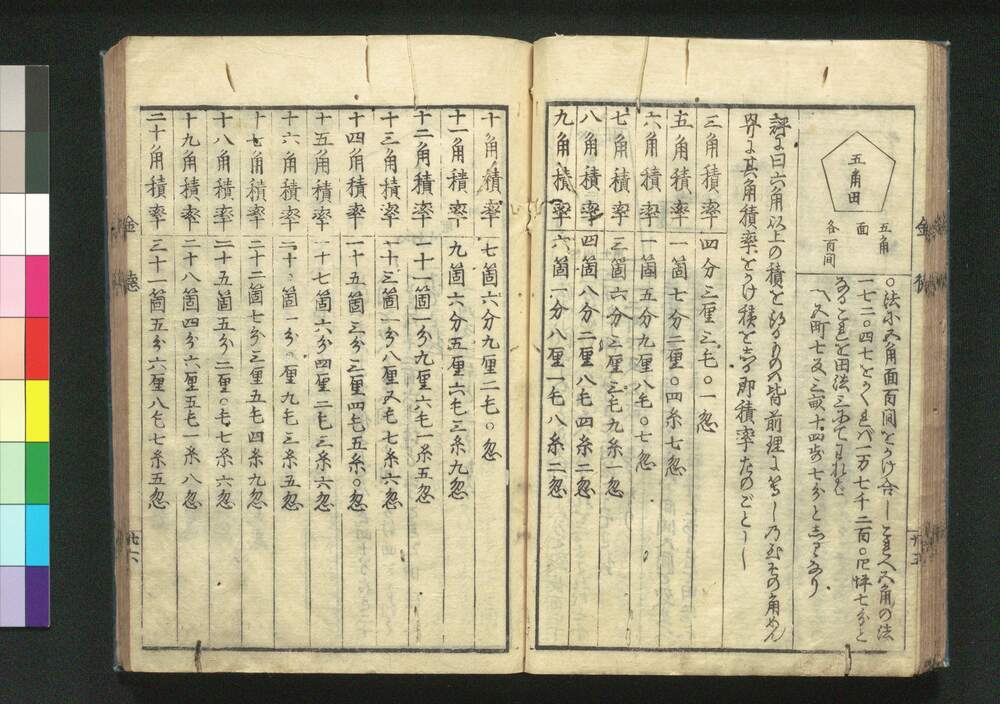 五角田
五角
面
各百間
○法に五角面百間をかけ合しこれへ五角の法
一七二○四七をかくれバ一万七千二百○四坪七分と
なるこれを田法三
五町七反三畝十四歩七分としるなり
評に曰六角以上の積を
其角積率をかけ積をしる即積率左のごとし
三角積率 四分三厘三毛○一忽
五角積率 一箇七分二厘○四糸七忽
六角積率 一箇五分九厘八毛○七忽
七角積率 三箇六分三厘三毛九糸一忽
八角積率 四箇八分二厘八毛四糸二忽
九角積率 六箇一分八厘一毛八糸二忽
十角積率 七箇六分九厘二毛○忽
十一角積率 九箇六分五厘六毛三糸九忽
十二角積率 一十一箇一分九厘六毛一糸五忽
十三角積率 一十三箇一分八厘五毛七糸六忽
十四角積率 一十五箇三分三厘四毛五糸○忽
十五角積率 一十七箇六分四厘二毛三糸六忽
十六角積率 二十箇一分○厘九毛三糸五忽
十七角積率 二十二箇七分三厘五毛四糸九忽
十八角積率 二十五箇五分二厘○毛七糸六忽
十九角積率 二十八箇四分六厘五毛一糸八忽
二十角積率 三十一箇五分六厘八毛七糸五忽
廿六